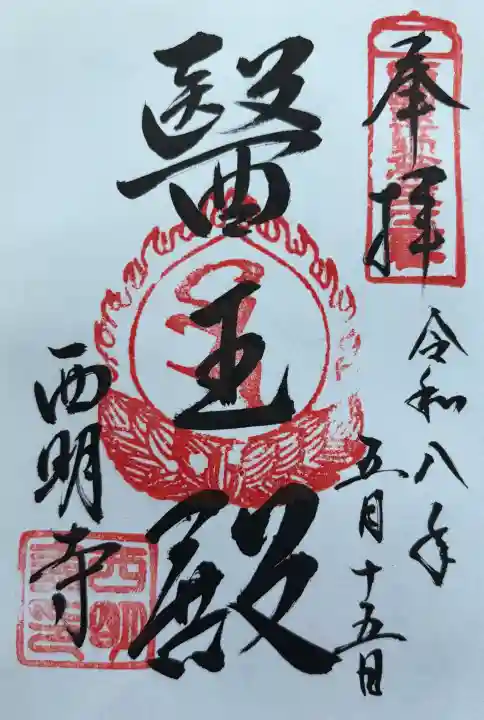 奉拝
令和八年
五月十五日
醫王殿
西明寺